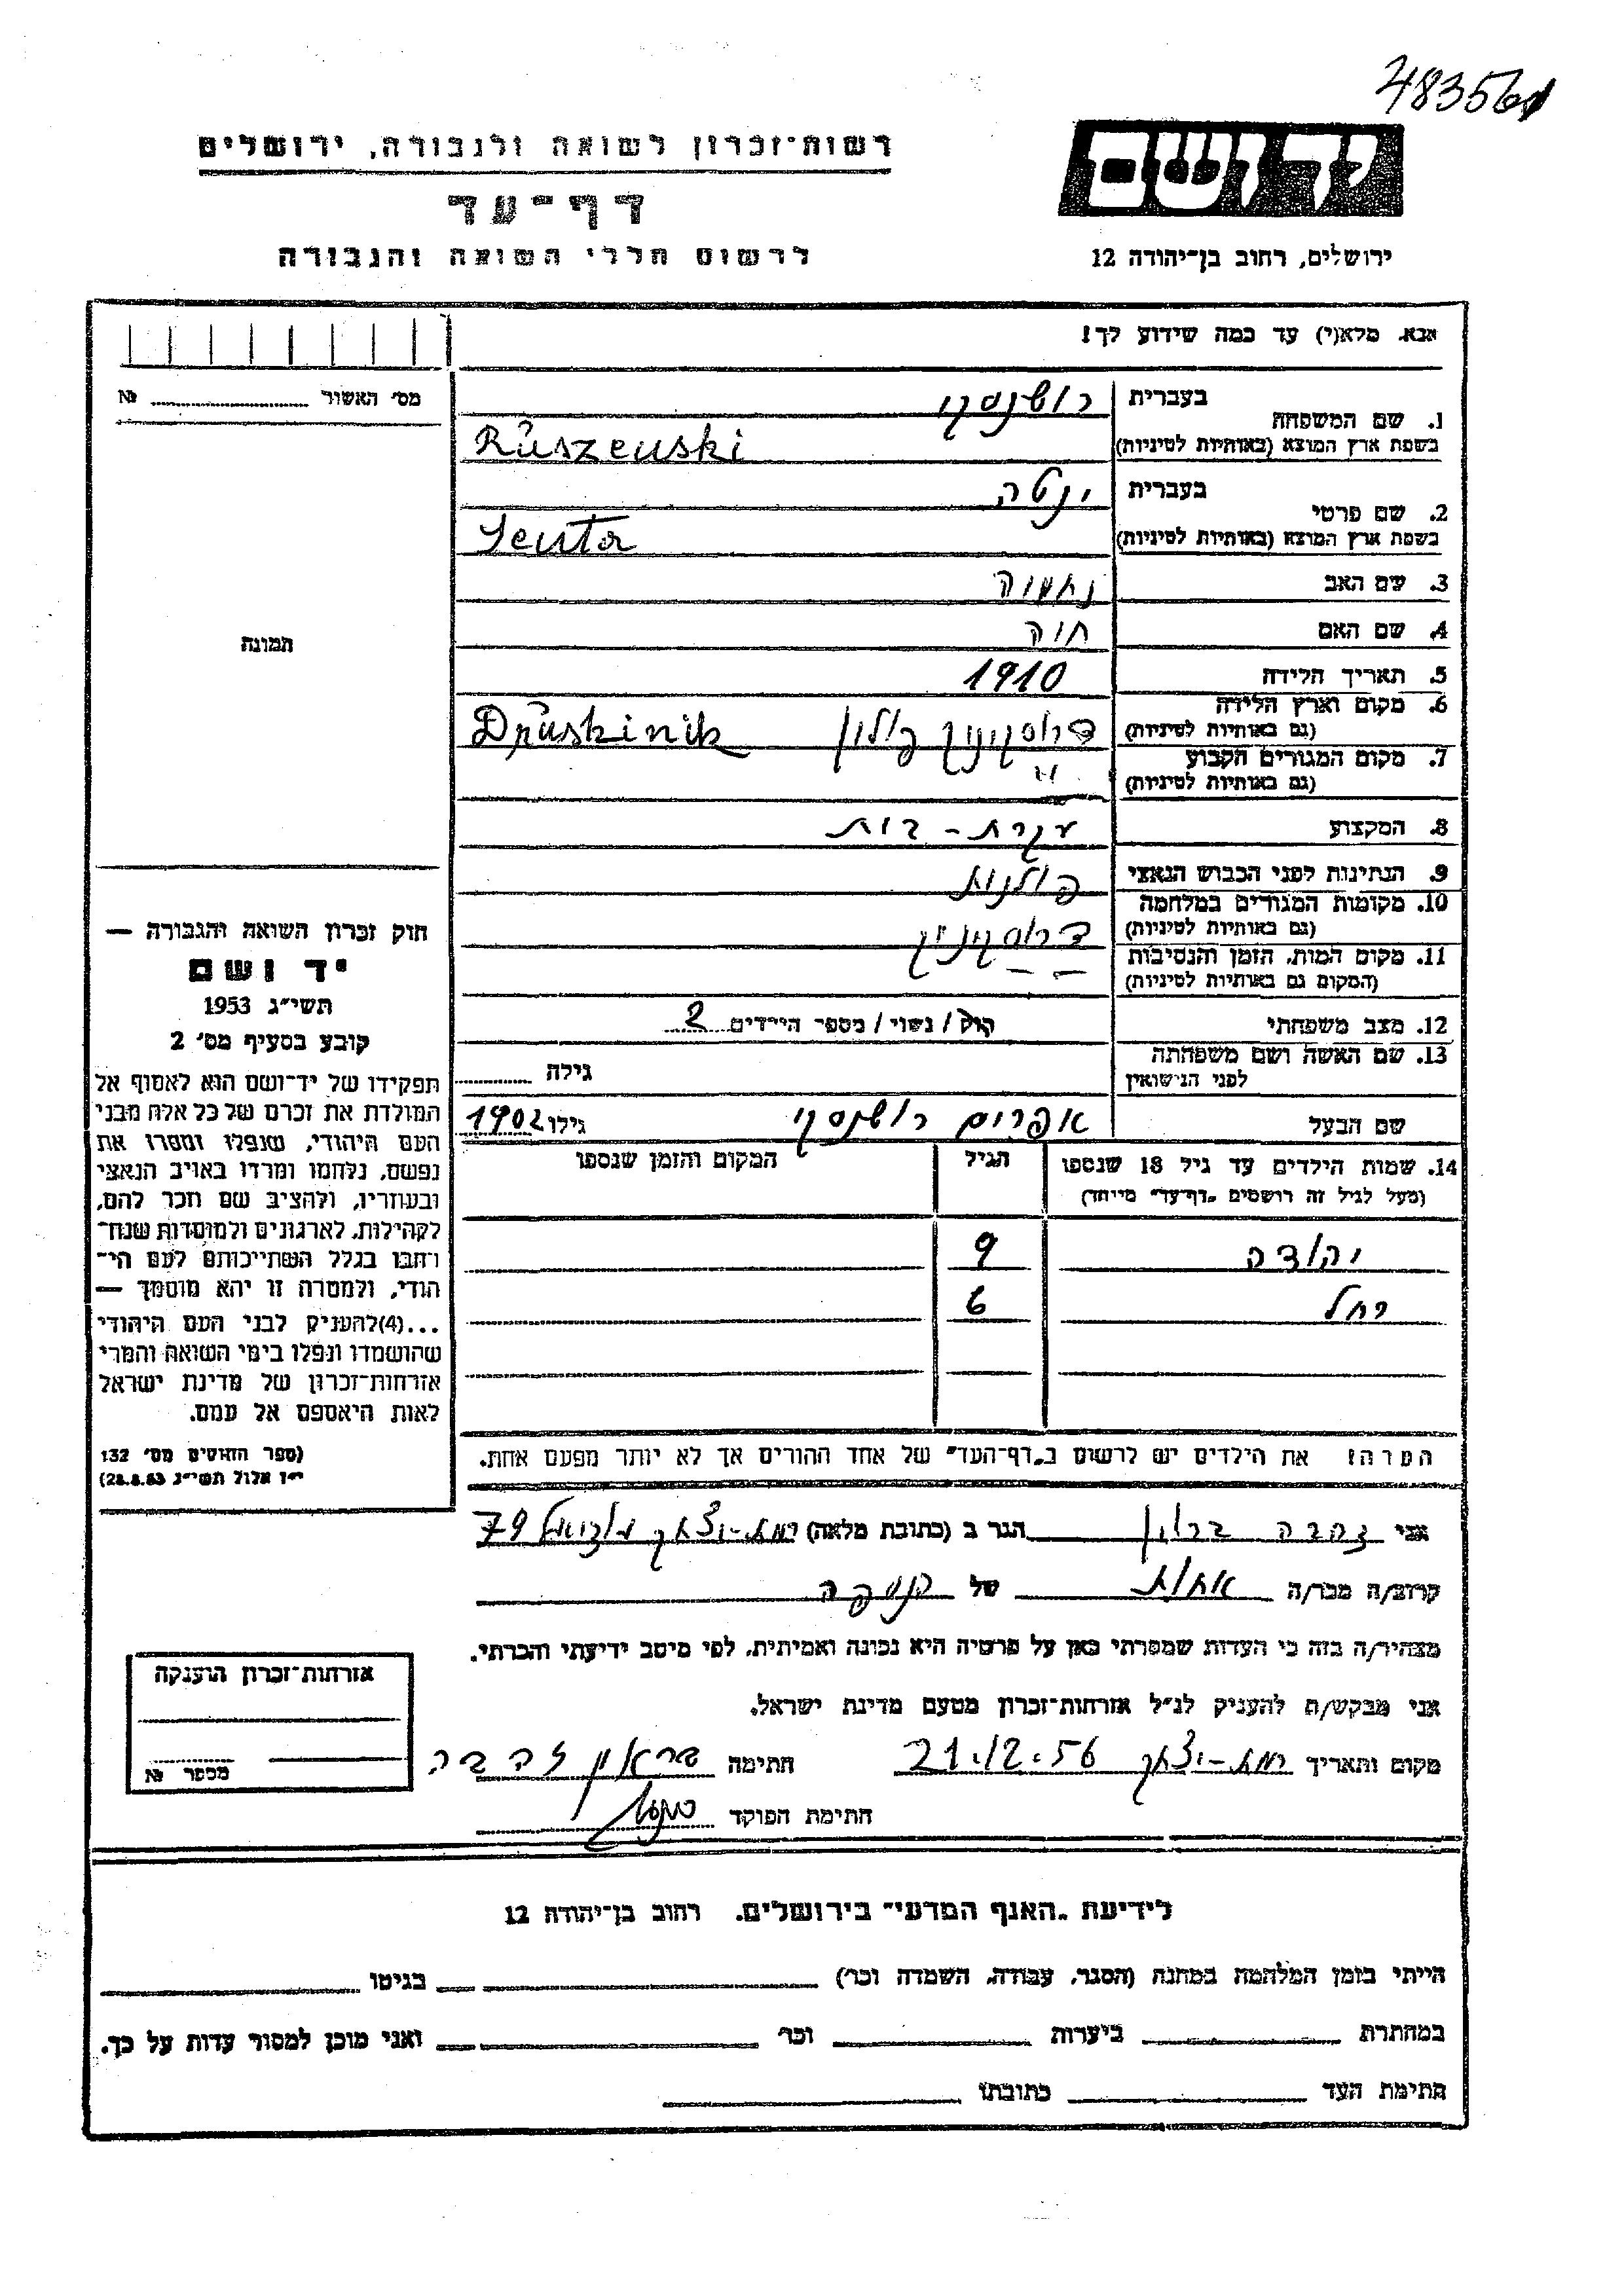 483561
רשות־זכרון לשואה ולגבורה, ירושלים
יד ושם
דף־עד
לרשום חללי השואה והגבורה
ירושלים, רחוב בן־יהודה 12
אבא. מלא(י) עד כמה שידוע לך!
מס׳ האשור № 
1. שם המשפחה
בעברית רושנסקי
בשפת ארץ המוצא (באותיות לטיניות) Ruszewski
2. שם פרטי
בעברית ינטה
בשפת ארץ המוצא (באותיות לטיניות) Jenta
3. שם האב נחמיה
4. שם האם חיה
5. תאריך הלידה 1910
6. מקום וארץ הלידה
(גם באותיות לטיניות) דרוסקיניק פולין Druskinik
7. מקום המגורים הקבוע
(גם באותיות לטיניות) "
8. המקצוע עקרת-בית
9. הנתינות לפני הכבוש הנאצי פולנית
10. מקומות המגורים במלחמה
(גם באותיות לטיניות) דרוסקיניק
11. מקום המות, הזמן והנסיבות
(המקום גם באותיות לטיניות) — —
12. מצב משפחתי רוק / נשוי / מספר הילדים 2
13. שם האשה ושם משפחתה
לפני הנישואין גילה
שם הבעל אפרים רושנסקי גילו 1902
14. שמות הילדים עד גיל 18 שנספו
(מעל לגיל זה רושמים „דף־עד” מיוחד)
הגיל
המקום והזמן שנספו
יהודה 9
רחל 6
הערה: את הילדים יש לרשום ב„דף־העד” של אחד ההורים אך לא יותר מפעם אחת.
תמונה
חוק זכרון השואה והגבורה —
יד ושם
תשי״ג 1953
קובע בסעיף מס׳ 2
תפקידו של יד־ושם הוא לאסוף אל
המולדת את זכרם של כל אלה מבני
העם היהודי, שנפלו ומסרו את
נפשם, נלחמו ומרדו באויב הנאצי
ובעוזריו, ולהציב שם וזכר להם,
לקהילות, לארגונים ולמוסדות שנח־
רבו בגלל השתייכותם לעם הי־
הודי, ולמטרה זו יהא מוסמך —
...(4)להעניק לבני העם היהודי
שהושמדו ונפלו בימי השואה והמרי
אזרחות־זכרון של מדינת ישראל
לאות היאספם אל עמם.
(ספר החוקים מס׳ 132
י״ז אלול תשי״ג 28.8.53)
אני זהבה הגר ב (כתובת מלאה) רמת-יצחק 79
קרוב/ה מכר/ה אחות של הנספה
מצהיר/ה בזה כי העדות שמסרתי כאן על פרטיה היא נכונה ואמיתית, לפי מיטב ידיעתי והכרתי.
אני מבקש/ת להעניק לנ״ל אזרחות־זכרון מטעם מדינת ישראל.
מקום ותאריך רמת-יצחק 21.12.56 חתימה זהבה
חתימת הפוקד
אזרחות־זכרון הוענקה
מספר №
לידיעת „האגף המדעי” בירושלים, רחוב בן־יהודה 12
הייתי בזמן המלחמה במחנה (הסגר, עבודה, השמדה וכו׳) בגיטו
במחתרת ביערות וכו׳ ואני מוכן למסור עדות על כך.
חתימת העד כתובתו